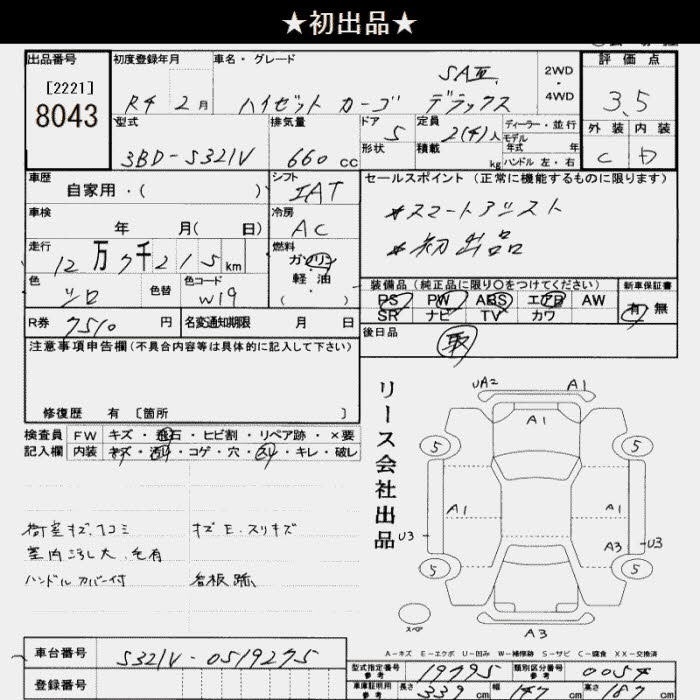 ★初出品★
出品番号
[2221]
8043
初度登録年月
R4 2月
車名・グレード
SAⅢ
ハイゼット カーゴ デラックス
2WD
・
4WD
評価点
3.5
外装 内装
C D
型式
3BD-S321V
排気量
660 cc
ドア
形状
5
定員
積載
2(4)人
kg
ディーラー・並行
モデル
年式 年
ハンドル 左・右
車歴
自家用・( )
シフト
IAT
セールスポイント (正常に機能するものに限ります)
*スマートアシスト
*初出品
車検
年 月( 日)
冷房
AC
走行
12万7千215km
燃料
ガソリン
軽油
・
( )
色
シロ
色替
色コード
W19
装備品(純正品に限り○をつけてください)
PS PW ABS エアB AW
SR ナビ TV カワ
新車保証書
有 無
R券
7510 円
名変通知期限 月 日
後日品
取
注意事項申告欄(不具合内容等は具体的に記入して下さい)
修復歴 有 [箇所 ]
検査員
記入欄
FW キズ・飛石・ヒビ割・リペア跡・×要
内装 キズ・汚れ・コゲ・穴・スレ・キレ・破レ
荷室キズ、ヘコミ
室内汚れ大、毛有
ハンドルカバー付
キズE、スリキズ
看板跡
リース会社出品
UA2 A1
A1
5 5
A1 A1
A3
U3 U3
5 5
スペア
A3
A-キズ E-エクボ U-凹み W-補修跡 S-サビ C-腐食 XX-交換済
車台番号
S321V-0519275
登録番号
型式指定番号
参考
19795
類別区分番号
参考
0054
車庫証明用
参考
長さ 339 cm 幅 147 cm 高さ 187 cm